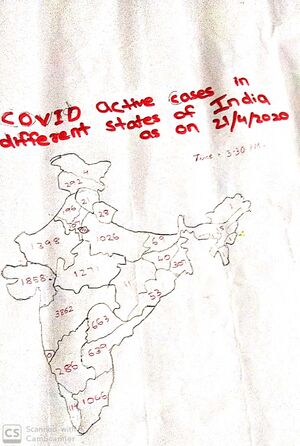 COVID active cases in
different states of India
as on 21/4/2020
Time - 3:30 PM.
292
96
21
28
1398
1026
69
1858
1271
40
305
11
53
3862
663
639
286
114 1066
CS Scanned with
CamScanner